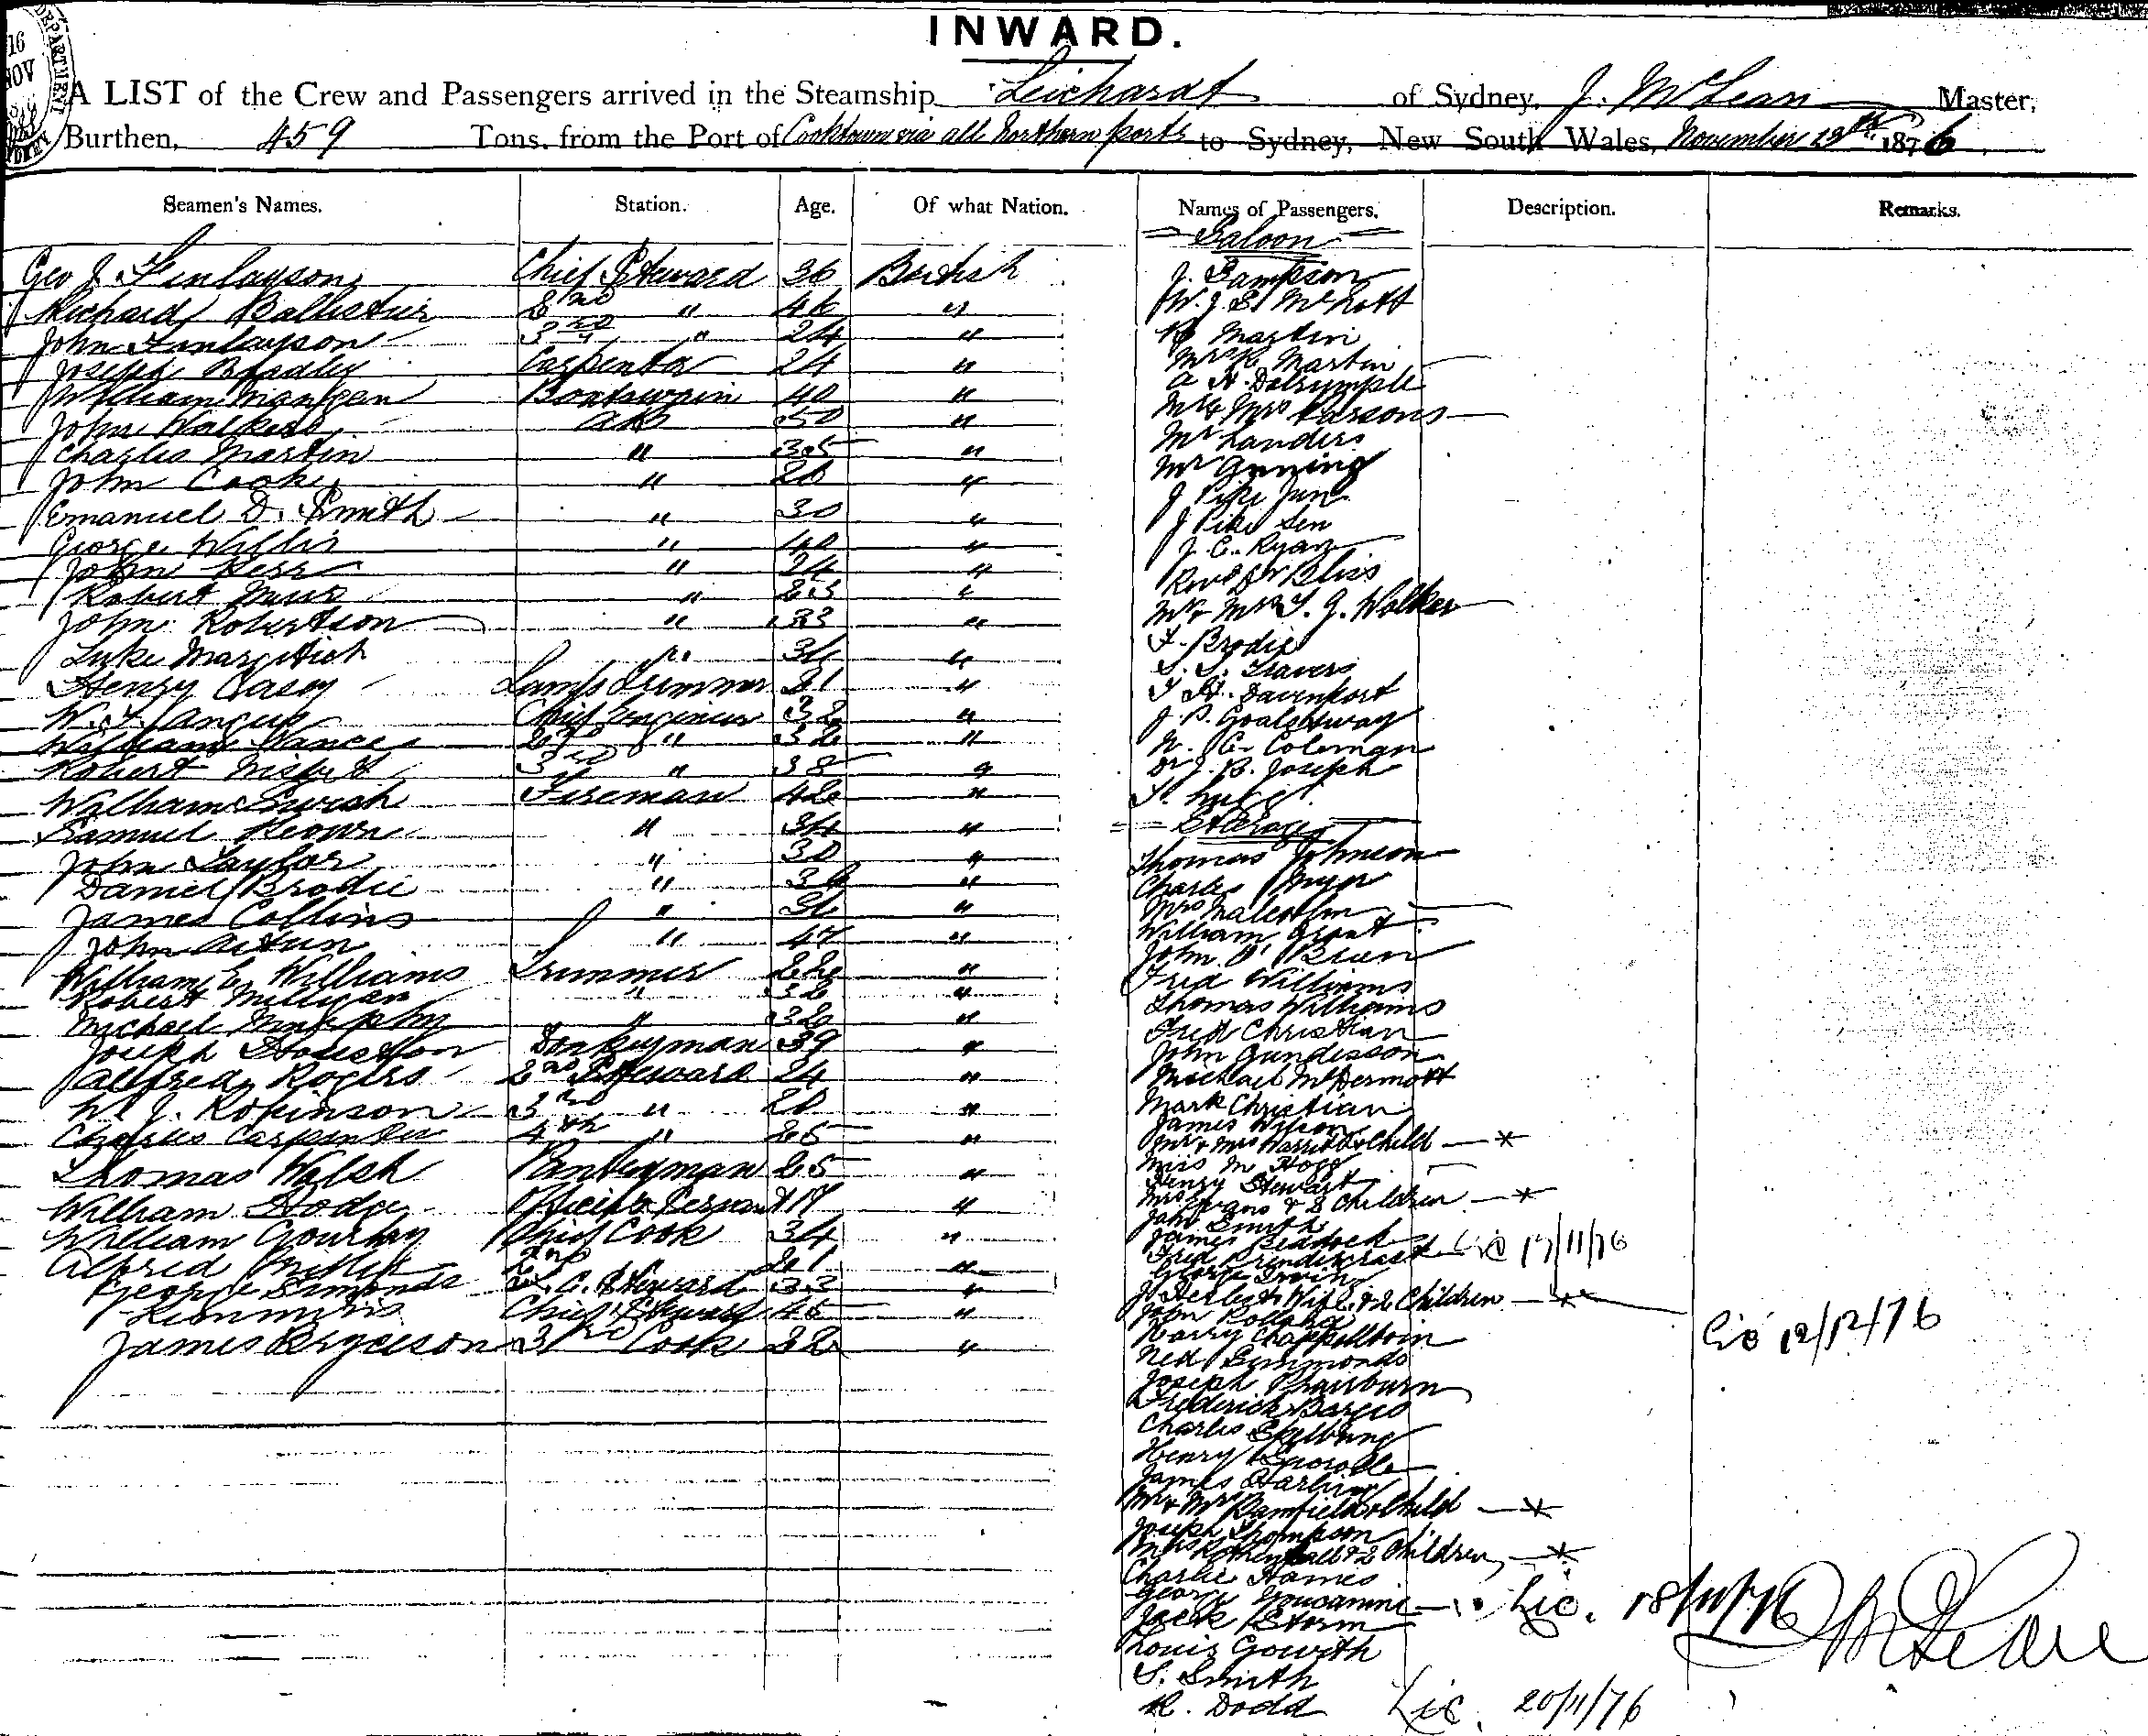 16
NOV
DEPARTMENT
INWARD.
A LIST of the Crew and Passengers arrived in the Steamship Leichardt of Sydney, J. McLean Master,
Burthen, 459 Tons, from the Port of Cooktown via all Northern ports to Sydney, New South Wales, November 1876
Seamen's Names. Station. Age. Of what Nation. Names of Passengers. Description. Remarks.
Saloon
Geo J. Finlayson Chief Steward 36 British
Richard 2nd " 46 "
John Finlayson 3rd " 24 "
Joseph Bradley Carpenter 24 "
William Boatswain 40 "
John AB 50 "
Charles Martin " 35 "
John Cook " "
Emanuel D. Smith " 30 "
George Willis " 40 "
John Kerr " 24 "
Robert Muir " 23 "
John Robertson " 33 "
Luke " "
Henry Casey Lamp Trimmer 21 "
W. Angus Chief Engineer 32 "
William Vance 2nd " 32 "
Robert Nisbet 3rd " 38 "
William Fireman 42 "
Samuel Keown " 34 "
John Taylor " 30 "
Daniel Brodie " "
James Collins " "
John " 47 "
William E. Williams Trimmer 22 "
Robert Milligan " 32 "
Michael " 32 "
Joseph Donkeyman 39 "
Alfred Rogers 2nd Steward 24 "
W. J. Robinson 3rd " 20 "
Charles Carpenter 4th " 25 "
Thomas Walsh Pantryman 25 "
William Dodge Officers Servant 17 "
William Gourlay Chief Cook 34 "
Alfred 2nd " 21 "
George Simonds Steward 33 "
Chief Steward 45 "
James Bryceson 3rd Cook 22 "
J. Sampson
W. J. S. McNott
R Martin
Mrs R. Martin
A H. Dalrymple
Mr & Mrs Parsons
Mr Landers
Mr Anning
J Pike Jun
J Pike Sen
J. C. Ryan
Revd Dr Bliss
Mr & Mrs T. J. Walker
F. Brodie
Travers
T H. Davenport
J. P. Goalshway
N. C. Coleman
Dr J. B. Joseph
Steerage
Thomas Johnson
Charles Myer
Mrs Malcolm
William Grant
John O'Brien
Fred Williams
Thomas Williams
Fred Christian
John Gundisson
Michael McDermott
Mark Christian
James Wilson
Mr & Mrs Harriott & Child
Miss M Hogg
Henry Stewart
Mrs Evans & 2 Children
John Smith
James
Fred Prendergast Lic 17/11/76
George Irvin
J Herbert Wife & 2 Children
Lic 12/12/76
John Pollard
Harry
Ned Simmonds
Joseph
Frederick
Charles
Henry
James Harling
Mr & Mrs Bamfield & Child
Joseph Thompson
Mrs & 2 Children
Charlie Hames
George Lic. 18/11/76
Jack Storm
Louis Gowith
S. Smith
R. Dodd Lic. 20/11/76
J McLean